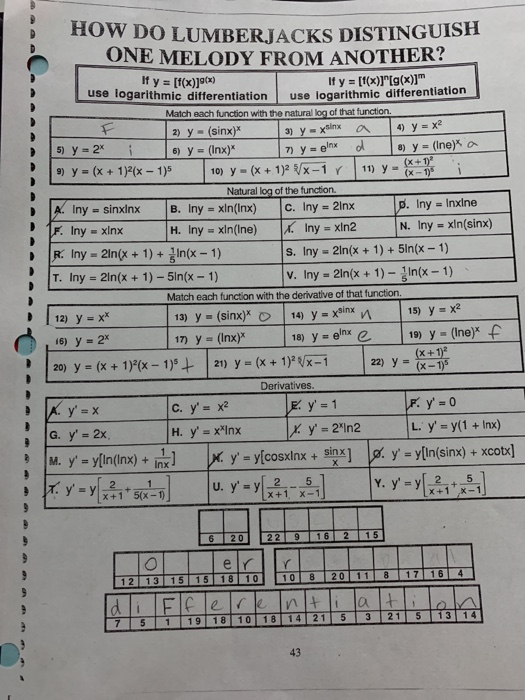 HOW DO LUMBERJACKS DISTINGUISH
ONE MELODY FROM ANOTHER?
If y = [f(x)]^g(x)
use logarithmic differentiation
If y = [f(x)]ⁿ[g(x)]ᵐ
use logarithmic differentiation
Match each function with the natural log of that function.
F
2) y = (sinx)ˣ
3) y = x^sinx a
4) y = x²
5) y = 2ˣ i
6) y = (lnx)ˣ
7) y = e^lnx d
8) y = (lne)ˣ a
9) y = (x + 1)²(x − 1)⁵
10) y = (x + 1)² ⁵√x−1 r
11) y = (x + 1)²/(x − 1)⁵ i
Natural log of the function.
A. lny = sinxlnx
B. lny = xln(lnx)
C. lny = 2lnx
D. lny = lnxlne
F. lny = xlnx
H. lny = xln(lne)
I. lny = xln2
N. lny = xln(sinx)
R. lny = 2ln(x + 1) + 1/5 ln(x − 1)
S. lny = 2ln(x + 1) + 5ln(x − 1)
T. lny = 2ln(x + 1) − 5ln(x − 1)
V. lny = 2ln(x + 1) − 1/5 ln(x − 1)
Match each function with the derivative of that function.
12) y = xˣ
13) y = (sinx)ˣ o
14) y = x^sinx n
15) y = x²
16) y = 2ˣ
17) y = (lnx)ˣ
18) y = e^lnx e
19) y = (lne)ˣ f
20) y = (x + 1)²(x − 1)⁵ t
21) y = (x + 1)² ⁵√x−1
22) y = (x + 1)²/(x − 1)⁵
Derivatives.
A. y' = x
C. y' = x²
E. y' = 1
F. y' = 0
G. y' = 2x
H. y' = xˣlnx
I. y' = 2ˣln2
L. y' = y(1 + lnx)
M. y' = y[ln(lnx) + 1/lnx]
N. y' = y[cosxlnx + sinx/x]
O. y' = y[ln(sinx) + xcotx]
T. y' = y[2/x+1 + 1/5(x−1)]
U. y' = y[2/x+1 − 5/x−1]
Y. y' = y[2/x+1 + 5/x−1]
6 20 22 9 16 2 15
o e r r
12 13 15 15 18 10 10 8 20 11 8 17 16 4
d i F f e r e n t i a t i o n
7 5 1 19 18 10 18 14 21 5 3 21 5 13 14
43